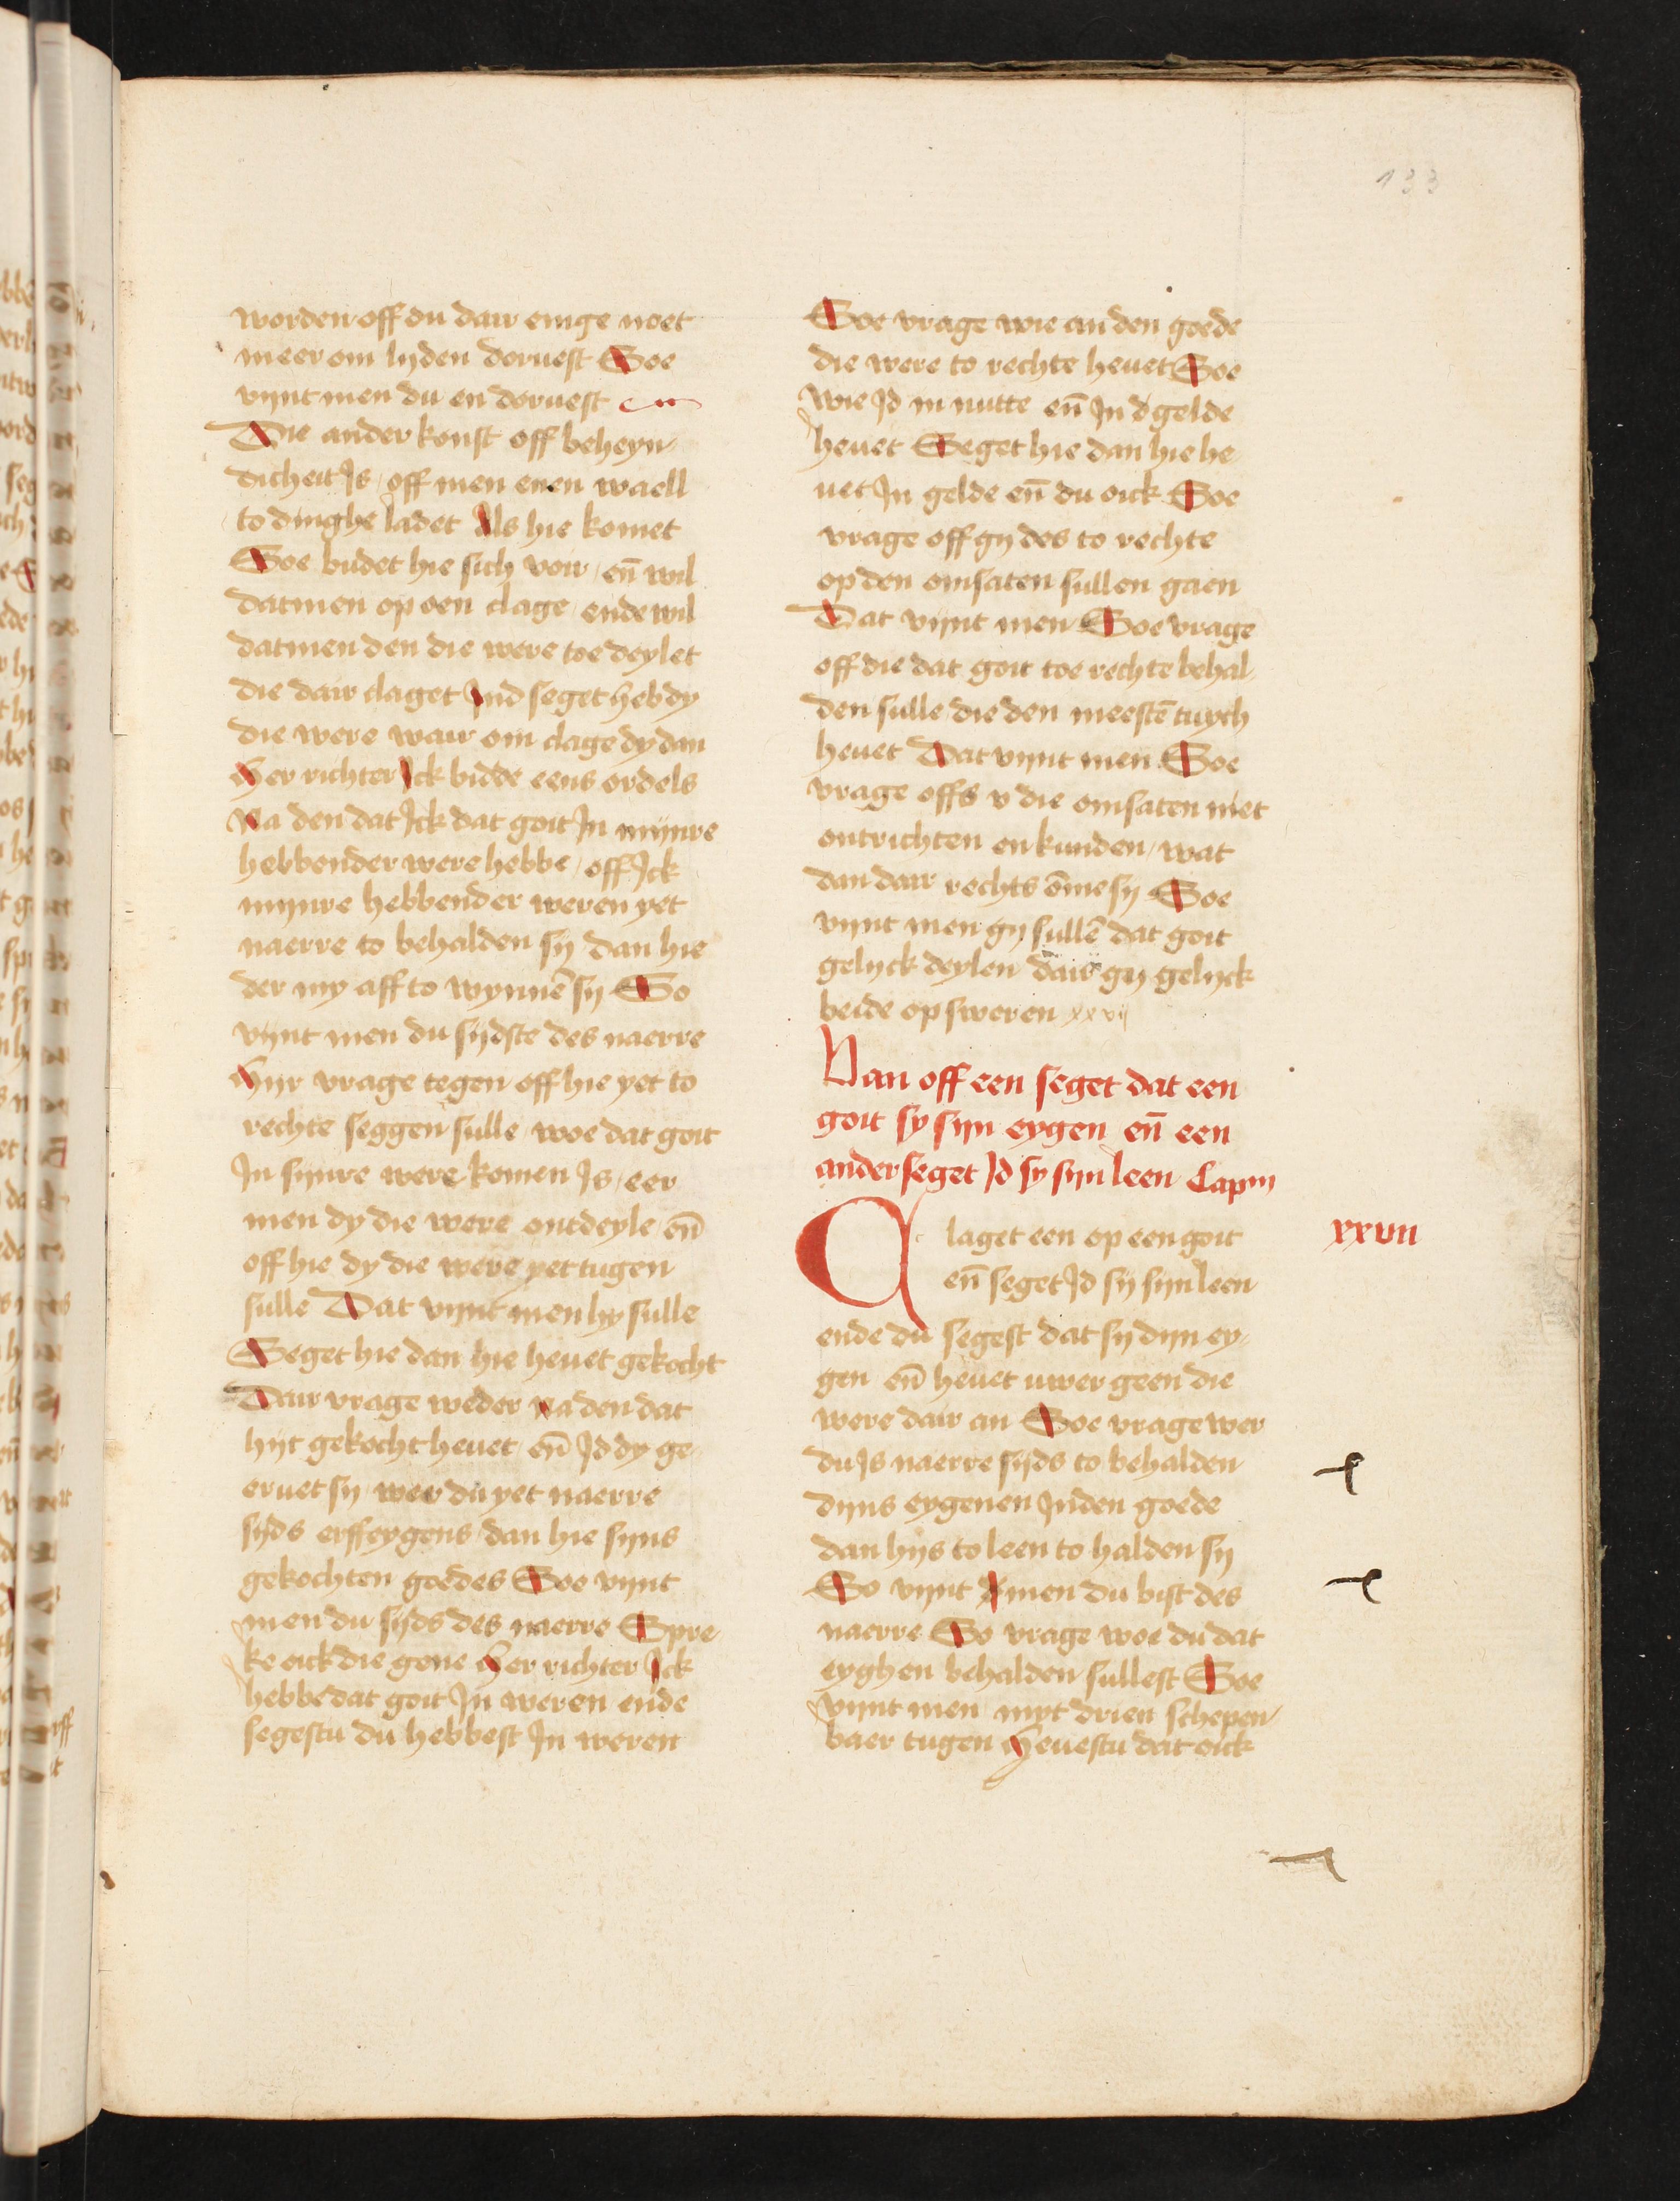 133
worden off du dair enige noet
meer om lyden dervest Soe
vijnt men du en dervest
Die ander konst off beheyn
dicheit Is / off men enen waell
to dinghe ladet Als hie komet
Soe budet hie sich voir / en̄ wil
datmen op oen clage / ende wil
datmen den die were toe deylet
die dair claget Ind seget heb dy
die were wair om clage dy dan
Her richter Ick bidde eens ordels
Na den dat Ick dat goit In mijnre
hebbender were hebbe / off Ick
mijnre hebbender weren yet
naerre to behalden sij dan hie
der my aff to wynnē sij So
vijnt men du sijdste des naerre
Hijr vrage tegen off hie yet to
rechte seggen sulle woe dat goit
In sijnre were komen Is / eer
men dy die were ontdeyle / en̄
off hie dy die were yet tugen
sulle Dat vijnt men hy sulle
Seget hie dan hie hevet gekocht
Dair vrage weder na den dat
hijt gekocht hevet / en̄ Id dy ge
ervet sij wer du yet naerre
sijds erffeygens dan hie sijns
gekochten goedes Soe vijnt
men du sijds des naerre Spre
ke oick die gene Her richter Ick
hebbe dat goit In weren ende
segestu du hebbest In weren
Soe vrage wie an den goede
die were to rechte hevet Soe
wie Id in nutte en̄ In d gelde
hevet Seget hie dan hie he
vet In gelde en̄ du oick Soe
vrage off gy des to rechte
op den omsaten sullen gaen
Dat vijnt men Soe vrage
off die dat goit toe rechte behal
den sulle die den meestē tuych
hevet Dat vijnt men Soe
vrage offs v die omsaten niet
ontrichten en kunden / wat
dan dair rechts ōme sij Soe
vijnt men gij sullē dat goit
gelijck deylen dair gij gelijck
beide op sweren xxvij
Van off een seget dat een
goit sy sijn eygen en̄ een
ander seget Id sy sijn leen Capm
xxvii
Claget een op een goit
en̄ seget Id sij sijn leen
ende du segest dat sij dijn ey
gen en̄ hevet uwer geen die
were dair an Soe vrage wer
du Is naerre sijds to behalden
dijns eygenen In den goede
dan hijs to leen to halden sij
So vijnt men du bist des
naerre So vrage woe du dat
eyghen behalden sullest Soe
vijnt men myt drien schepen
baer tugen Hevestu dat oick